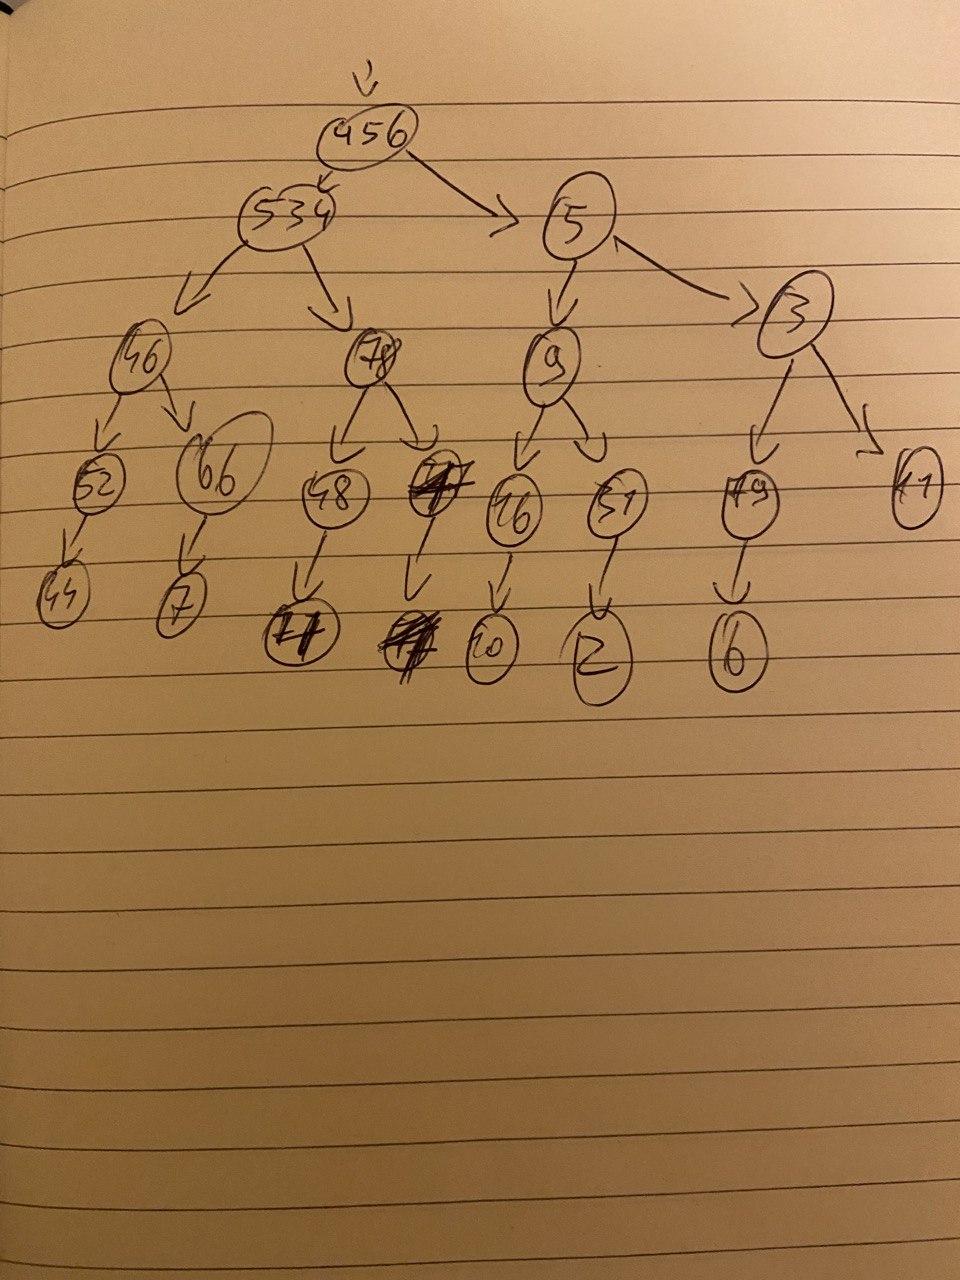 456
534 5
3
46 78 9
52 66 48 16 31 79 11
44 7 10 2 6